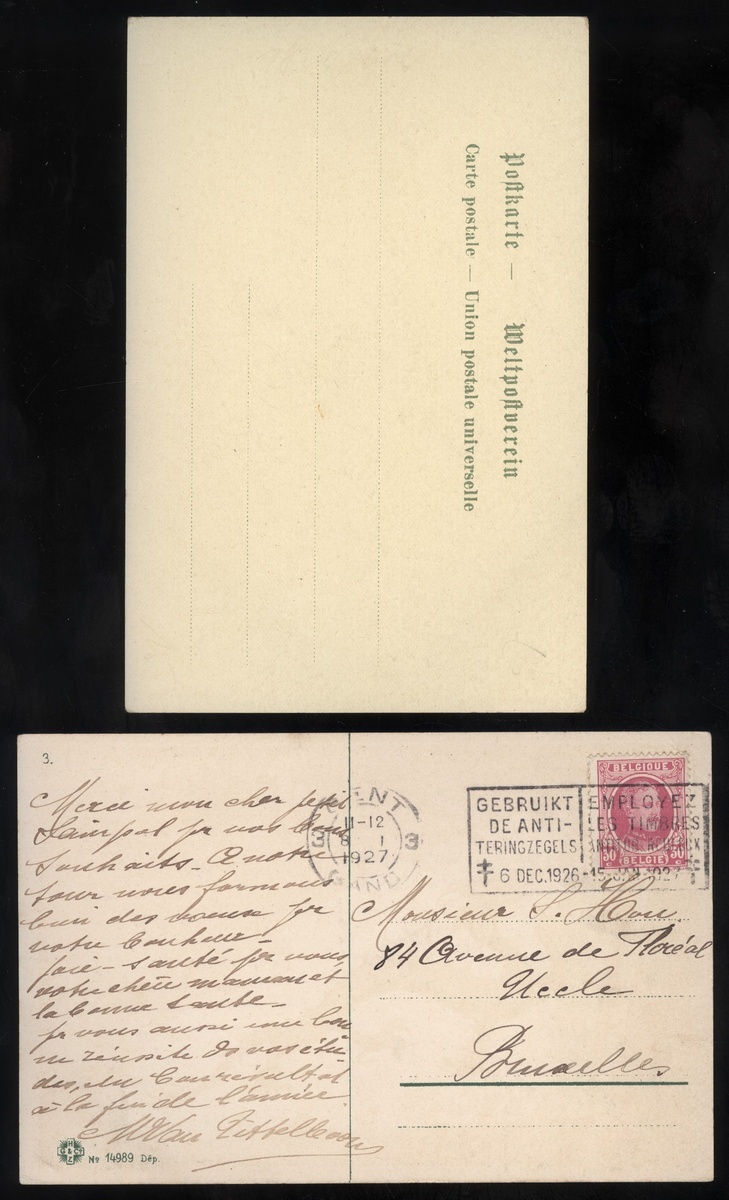 Postkarte — Weltpostverein
Carte postale — Union postale universelle
3.
Merci mon cher petit
pr vos bons
souhaits. A notre
tour nous formons
bien des voeux pr
votre bonheur –
joie – santé pr vous
votre chère maman et
la bonne Sante –
pr vous aussi une bon
ne réussite de vos étu
des, un bon résultat
à la fin de l'année.
M Van
H
G & Co
Z
No 14989 Dép.
GENT
11-12
3 8 I 3
1927
GAND
GEBRUIKT
DE ANTI-
TERINGZEGELS
6 DEC. 1926 -
EMPLOYEZ
LES TIMBRES
15 JAN 1927
BELGIQUE
30 30
BELGIE
Monsieur
84 Avenue de Floréal
Uccle
Bruxelles